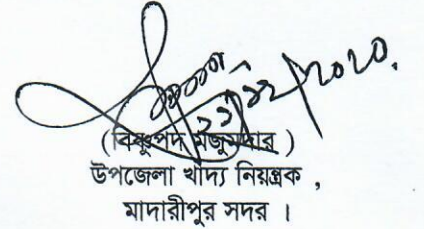 ২১/১২/২০২০.
(বিষ্ণুপদ মজুমদার )
উপজেলা খাদ্য নিয়ন্ত্রক ,
মাদারীপুর সদর ।